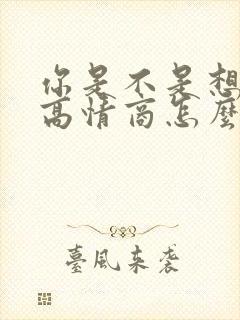 你是不是想
高情商怎麼
臺風来袭